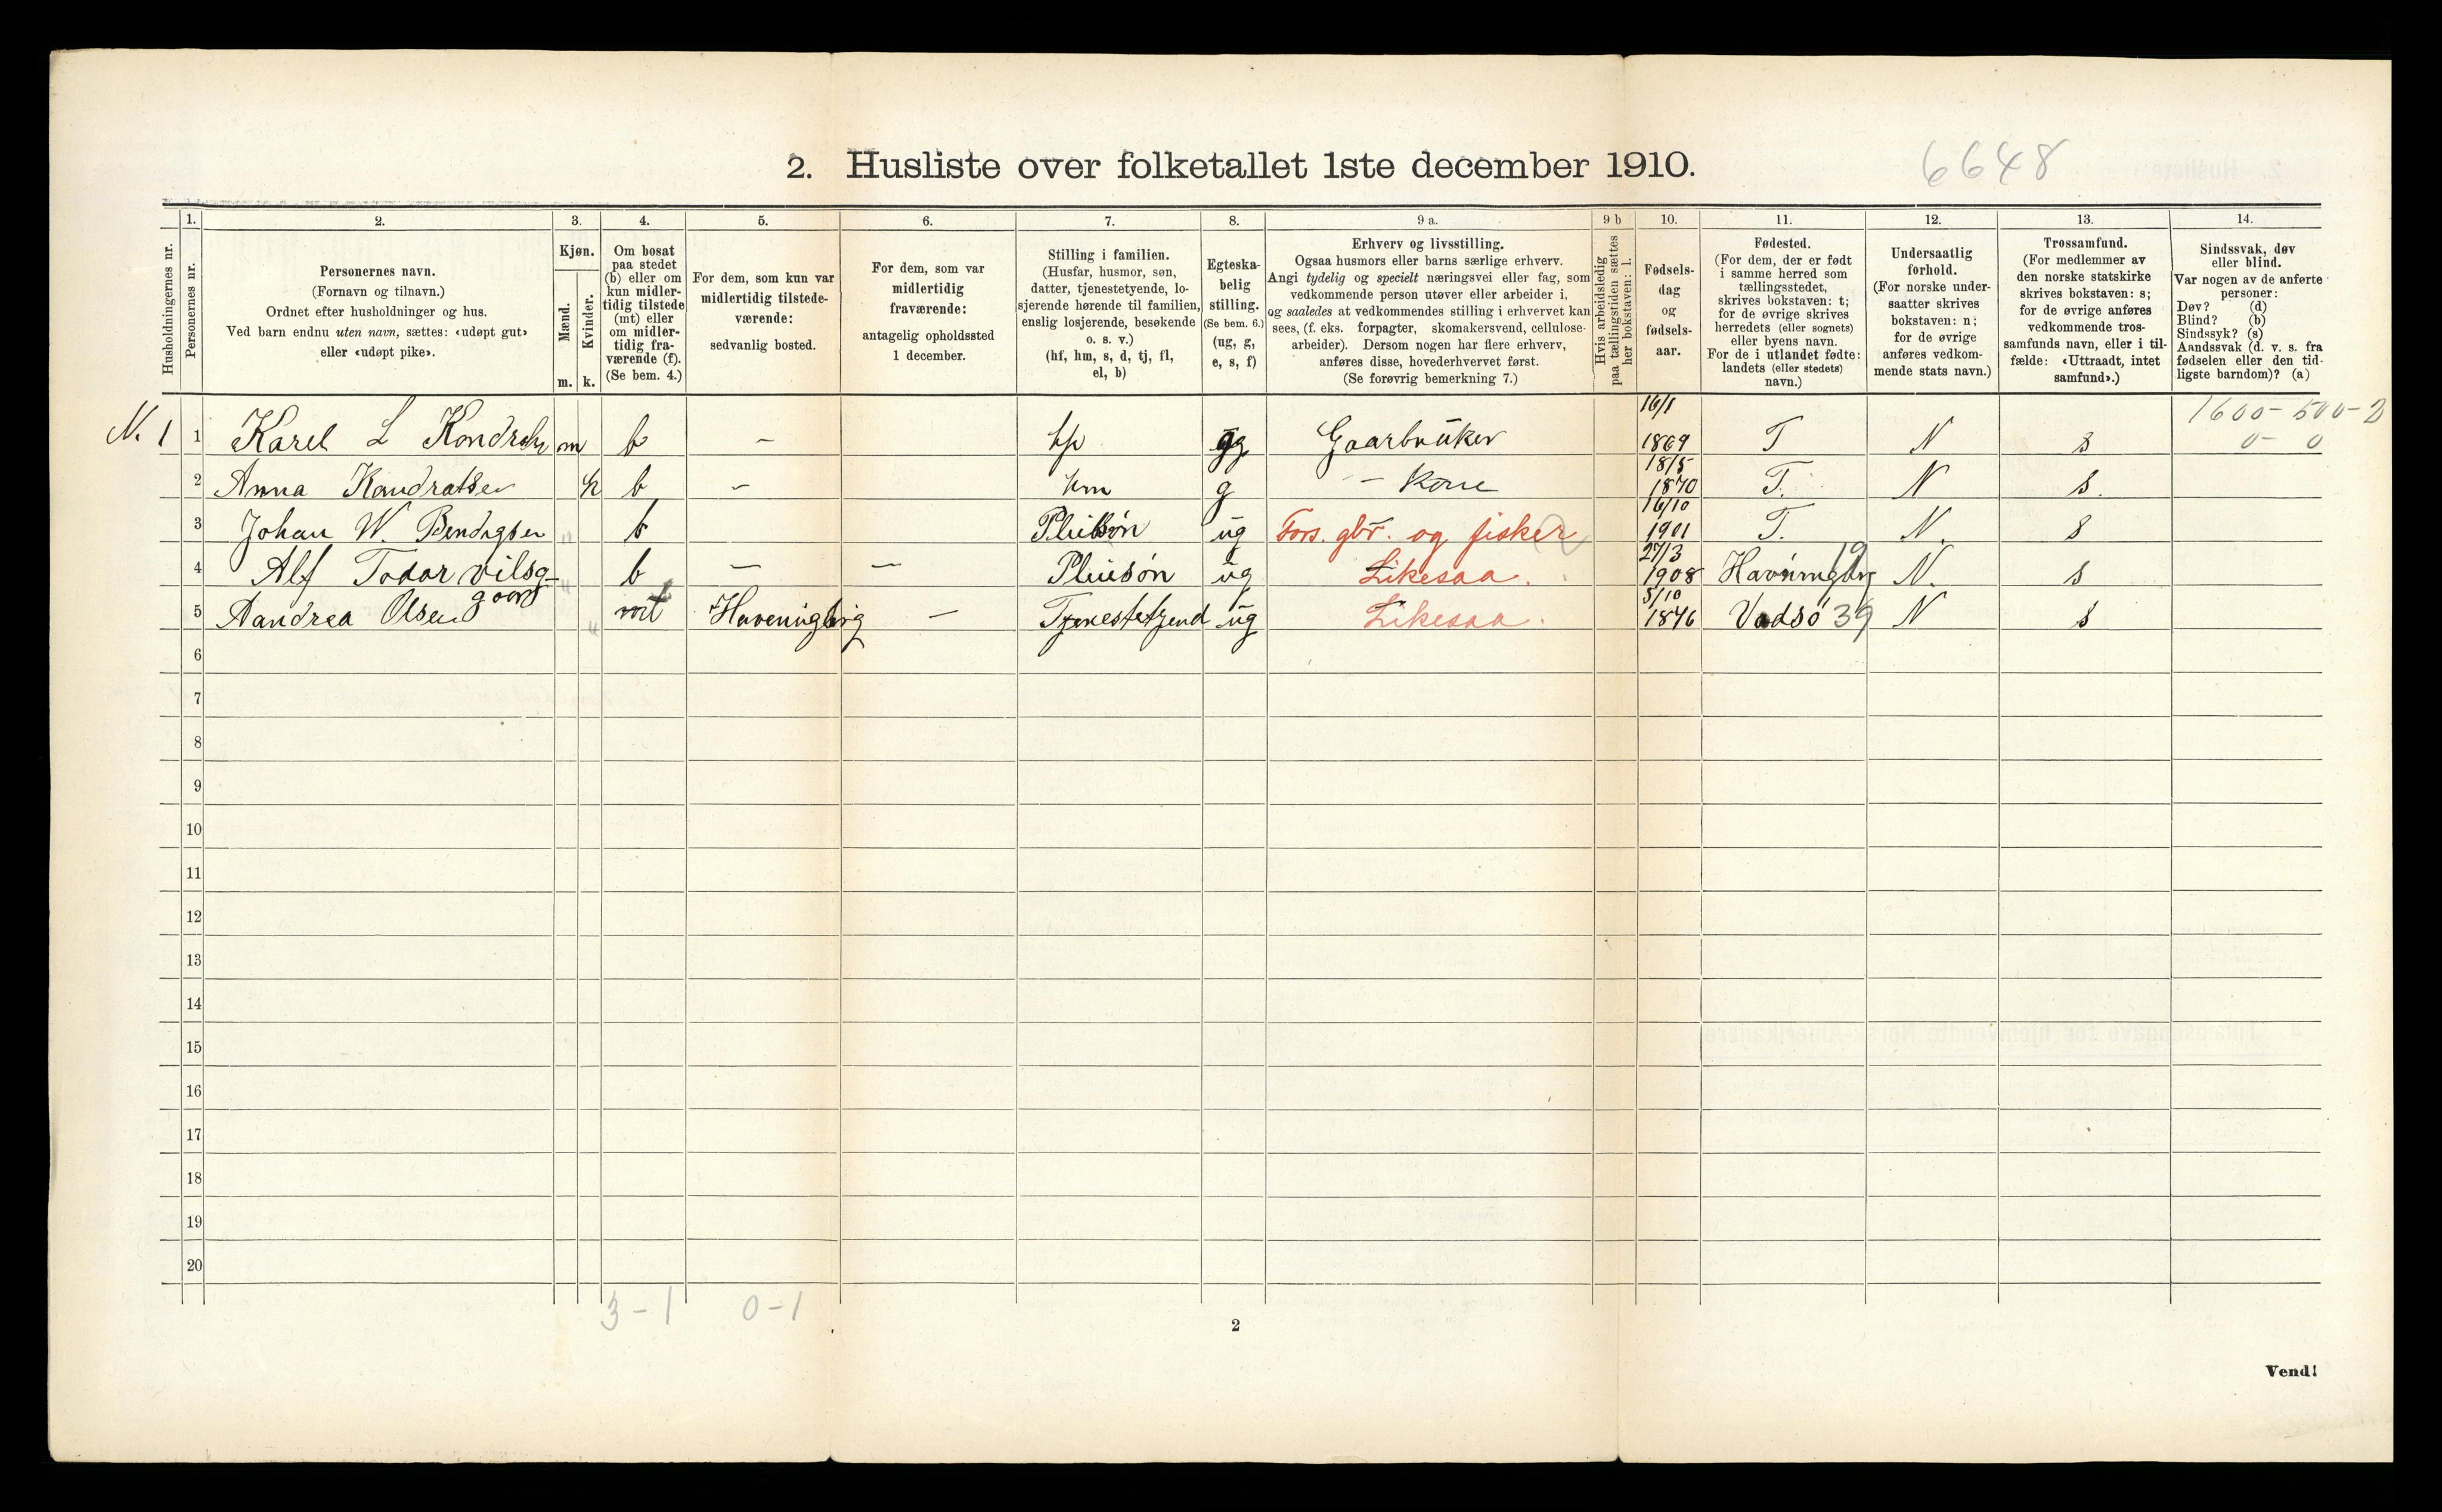 2. Husliste over folketallet 1ste december 1910.
6648
1. 2. 3. 4. 5. 6. 7. 8. 9 a. 9 b 10. 11. 12. 13. 14.
Husholdningernes nr.
Personernes nr.
Personernes navn.
(Fornavn og tilnavn.)
Ordnet efter husholdninger og hus.
Ved barn endnu uten navn, sættes: «udøpt gut»
eller «udøpt pike».
Kjøn.
Mænd.
Kvinder.
m. k.
Om bosat
paa stedet
(b) eller om
kun midler-
tidig tilstede
(mt) eller
om midler-
tidig fra-
værende (f).
(Se bem. 4.)
For dem, som kun var
midlertidig tilstede-
værende:
sedvanlig bosted.
For dem, som var
midlertidig
fraværende:
antagelig opholdssted
1 december.
Stilling i familien.
(Husfar, husmor, søn,
datter, tjenestetyende, lo-
sjerende hørende til familien,
enslig losjerende, besøkende
o. s. v.)
(hf, hm, s, d, tj, fl,
el, b)
Egteska-
belig
stilling.
(Se bem. 6.)
(ug, g,
e, s, f)
Erhverv og livsstilling.
Ogsaa husmors eller barns særlige erhverv.
Angi tydelig og specielt næringsvei eller fag, som
vedkommende person utøver eller arbeider i,
og saaledes at vedkommendes stilling i erhvervet kan
sees, (f. eks. forpagter, skomakersvend, cellulose-
arbeider). Dersom nogen har flere erhverv,
anføres disse, hovederhvervet først.
(Se forøvrig bemerkning 7.)
Hvis arbeidsledig
paa tællingstiden sættes
her bokstaven: l.
Fødsels-
dag
og
fødsels-
aar.
Fødested.
(For dem, der er født
i samme herred som
tællingsstedet,
skrives bokstaven: t;
for de øvrige skrives
herredets (eller sognets)
eller byens navn.
For de i utlandet fødte:
landets (eller stedets)
navn.)
Undersaatlig
forhold.
(For norske under-
saatter skrives
bokstaven: n;
for de øvrige
anføres vedkom-
mende stats navn.)
Trossamfund.
(For medlemmer av
den norske statskirke
skrives bokstaven: s;
for de øvrige anføres
vedkommende tros-
samfunds navn, eller i til-
fælde: «Uttraadt, intet
samfund».)
Sindssvak, døv
eller blind.
Var nogen av de anførte
personer:
Døv? (d)
Blind? (b)
Sindssyk? (s)
Aandssvak (d. v. s. fra
fødselen eller den tid-
ligste barndom)? (a)
1600-500-2
0-0
N. 1 1 Karel L m b - g Gaarbruker 16/1 1869 T N s
2 Anna Kondratsen k b - hm g - Kone 18/5 1870 T. N s.
3 Johan W. b Pleiesøn ug Fors. gbr. og fisker 16/10 1901 T. N. s
4 Alf Todor b - - Pleiesøn ug Likesaa. 27/3 1908 19 N. s
5 Aandrea Olsen mt - ug Likesaa. 5/10 1846 Vadsö 39 N s
6
7
8
9
10
11
12
13
14
15
16
17
18
19
20
3-1 0-1
2
Vend!